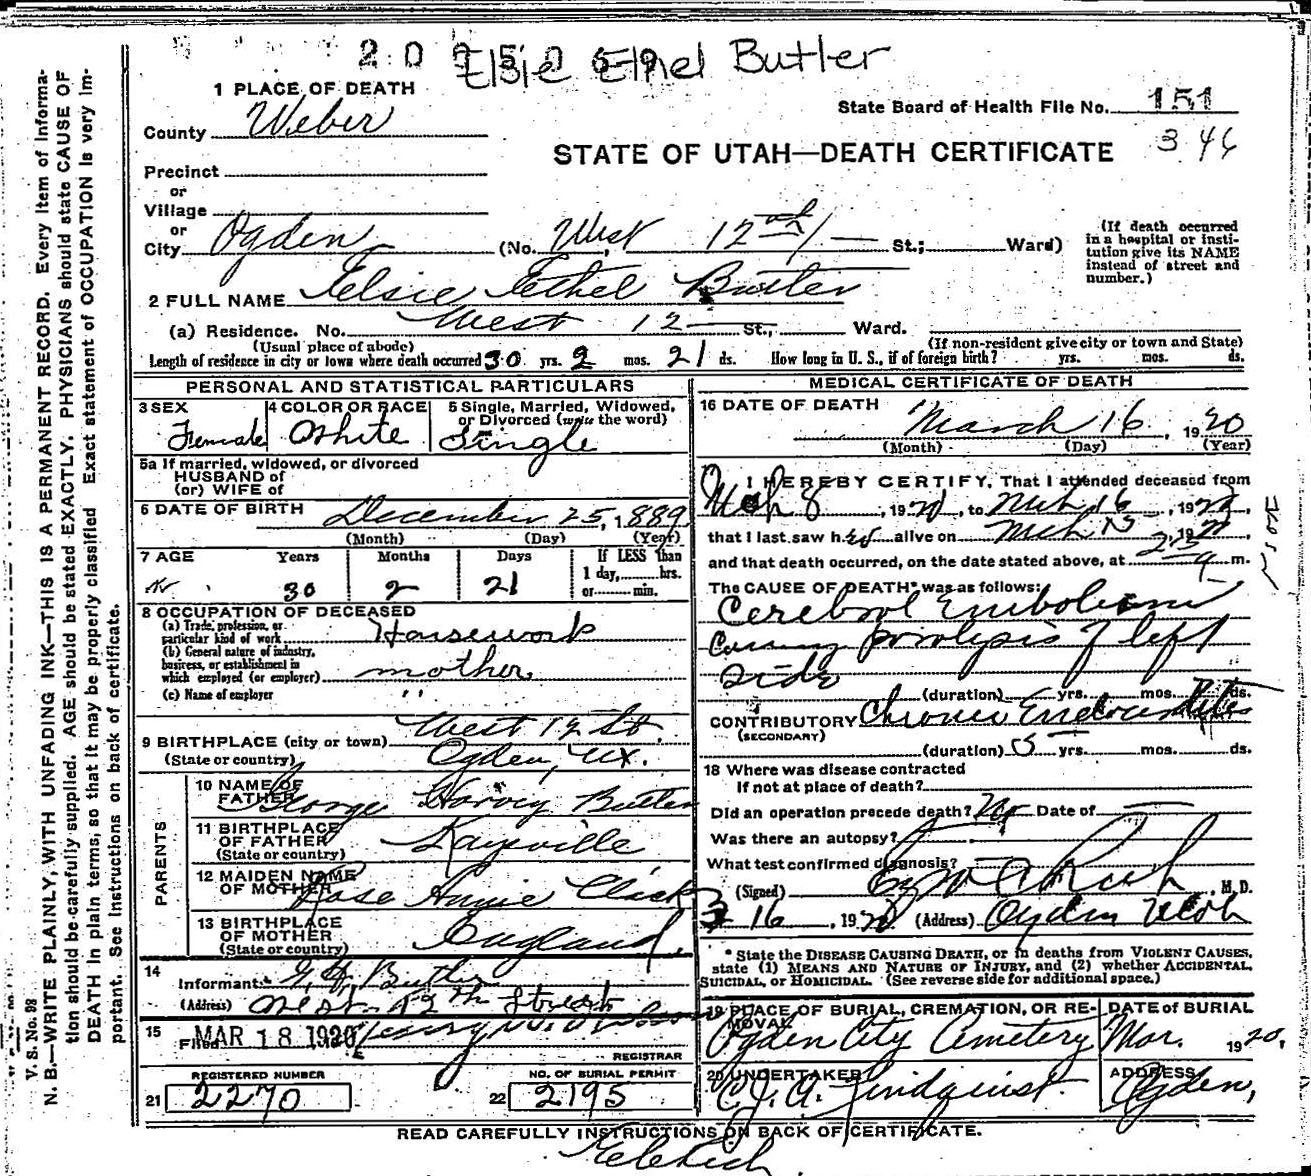 Elsie Ethel Butler
1 PLACE OF DEATH
State Board of Health File No. 151
County Weber
STATE OF UTAH—DEATH CERTIFICATE 346
Precinct
or
Village
or
City Ogden (No. West 12th St.; Ward)
(If death occurred in a hospital or institution give its NAME instead of street and number.)
2 FULL NAME Elsie Ethel Butler
(a) Residence. No. West 12 St., Ward.
(Usual place of abode) (If non-resident give city or town and State)
Length of residence in city or town where death occurred 30 yrs. 2 mos. 21 ds. How long in U. S., if of foreign birth? yrs. mos. ds.
PERSONAL AND STATISTICAL PARTICULARS
3 SEX Female
4 COLOR OR RACE White
5 Single, Married, Widowed, or Divorced (write the word) Single
5a If married, widowed, or divorced
HUSBAND of
(or) WIFE of
6 DATE OF BIRTH December 25, 1889
(Month) (Day) (Year)
7 AGE Years Months Days If LESS than
1 day, hrs.
or min.
30 2 21
8 OCCUPATION OF DECEASED
(a) Trade, profession, or
particular kind of work Housework
(b) General nature of industry,
business, or establishment in
which employed (or employer) mother
(c) Name of employer "
9 BIRTHPLACE (city or town) West 12 St.
(State or country) Ogden, Ut.
PARENTS
10 NAME OF
FATHER George Harvey Butler
11 BIRTHPLACE
OF FATHER Kaysville
(State or country)
12 MAIDEN NAME
OF MOTHER Rose Annie
13 BIRTHPLACE
OF MOTHER England
(State or country)
14
Informant G. H. Butler
(Address) West 12th Street
15
Filed MAR 18 1920
REGISTRAR
REGISTERED NUMBER
21 2270
NO. OF BURIAL PERMIT
22 2195
MEDICAL CERTIFICATE OF DEATH
16 DATE OF DEATH March 16, 1920
(Month) (Day) (Year)
I HEREBY CERTIFY, That I attended deceased from
Mch 8, 1920, to Mch 16, 1920,
that I last saw her alive on Mch 15, 1920
and that death occurred, on the date stated above, at m.
The CAUSE OF DEATH* was as follows:
Cerebral Embolism
Causing paralysis of left
side
(duration) yrs. mos. ds.
CONTRIBUTORY Chronic Endocarditis
(SECONDARY)
(duration) 5 yrs. mos. ds.
18 Where was disease contracted
If not at place of death?
Did an operation precede death? No Date of
Was there an autopsy?
What test confirmed diagnosis?
(Signed) , M. D.
3-16, 1920 (Address) Ogden Utah
* State the DISEASE CAUSING DEATH, or in deaths from VIOLENT CAUSES,
state (1) MEANS AND NATURE OF INJURY, and (2) whether ACCIDENTAL,
SUICIDAL, or HOMICIDAL. (See reverse side for additional space.)
19 PLACE OF BURIAL, CREMATION, OR REMOVAL
Ogden City Cemetery
DATE of BURIAL
Mar. 1920.
20 UNDERTAKER
Lindquist
ADDRESS
Ogden,
READ CAREFULLY INSTRUCTIONS ON BACK OF CERTIFICATE.
V. S. No. 98
N. B.—WRITE PLAINLY, WITH UNFADING INK—THIS IS A PERMANENT RECORD. Every item of informa-
tion should be carefully supplied. AGE should be stated EXACTLY. PHYSICIANS should state CAUSE OF
DEATH in plain terms, so that it may be properly classified. Exact statement of OCCUPATION is very im-
portant. See Instructions on back of certificate.